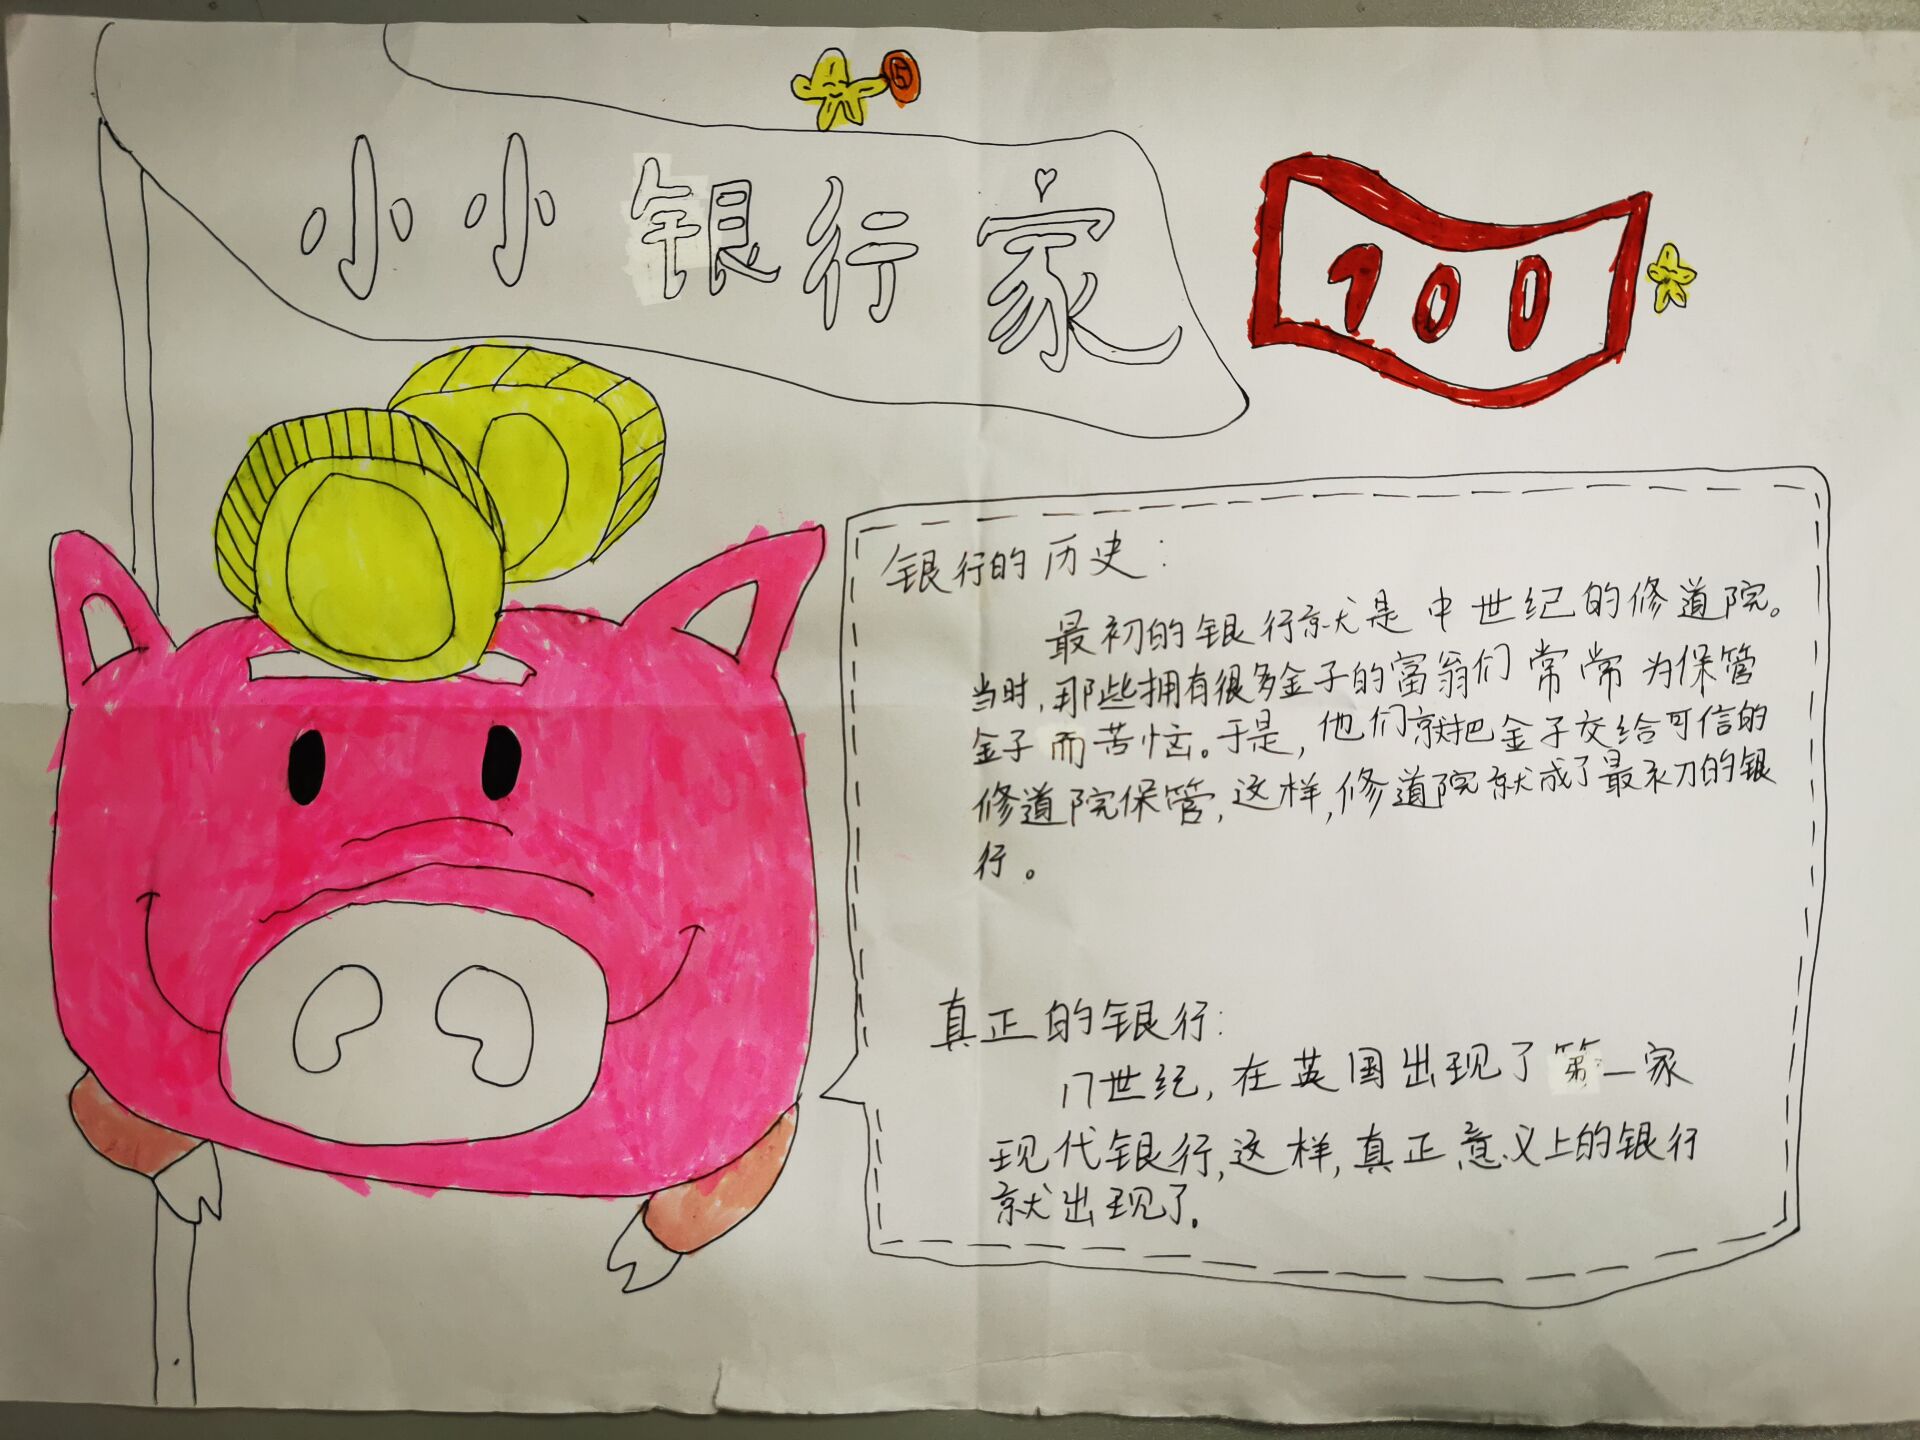 5
小小银行家
100
银行的历史:
最初的银行就是中世纪的修道院。
当时,那些拥有很多金子的富翁们常常为保管
金子而苦恼。于是,他们就把金子交给可信的
修道院保管,这样,修道院就成了最初的银
行。
真正的银行:
17世纪,在英国出现了第一家
现代银行,这样,真正意义上的银行
就出现了.